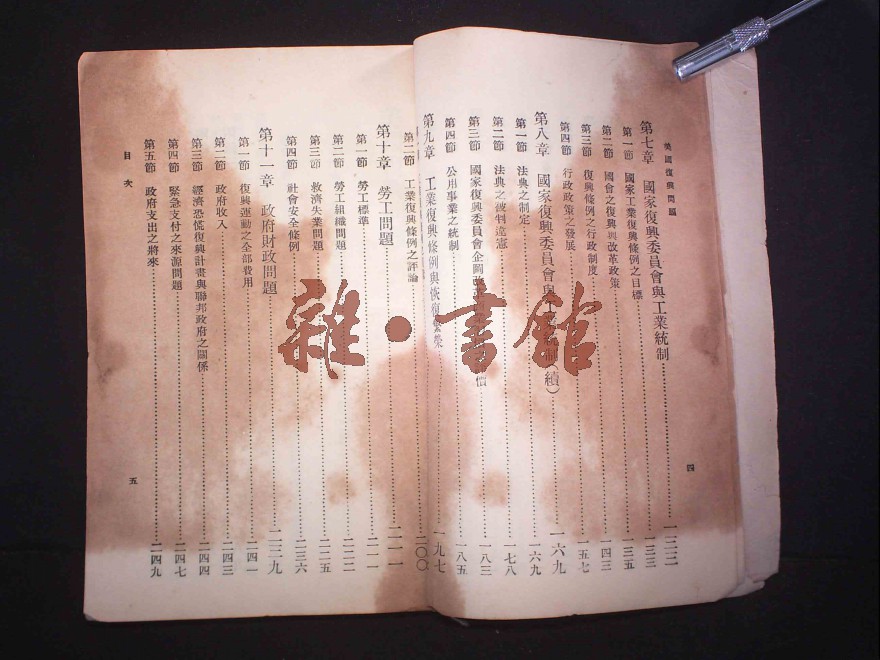 美國復興問題
第七章 國家復興委員會與工業統制……一三三
第一節 國家工業復興條例之目標……一三三
第二節 國會之復興與改革政策……一三五
第三節 復興條例之行政制度……一四三
第四節 行政政策之發展……一五七
第八章 國家復興委員會與工業統制(續)……一六九
第一節 法典之制定……一六九
第二節 法典之被判違憲……一七八
第三節 國家復興委員會企圖改 價……一八三
第四節 公用事業之統制……一八五
第九章 工業復興條例與恢復繁榮……一九七
第二節 工業復興條例之評論……二〇〇
四
第十章 勞工問題……二一一
第一節 勞工標準……二一一
第二節 勞工組織問題……二二二
第三節 救濟失業問題……二二五
第四節 社會安全條例……二三六
第十一章 政府財政問題……二三九
第一節 復興運動之全部費用……二四一
第二節 政府收入……二四三
第三節 經濟恐慌復興計畫與聯邦政府之關係……二四四
第四節 緊急支付之來源問題……二四七
第五節 政府支出之將來……二四九
目次
五
雜·書館